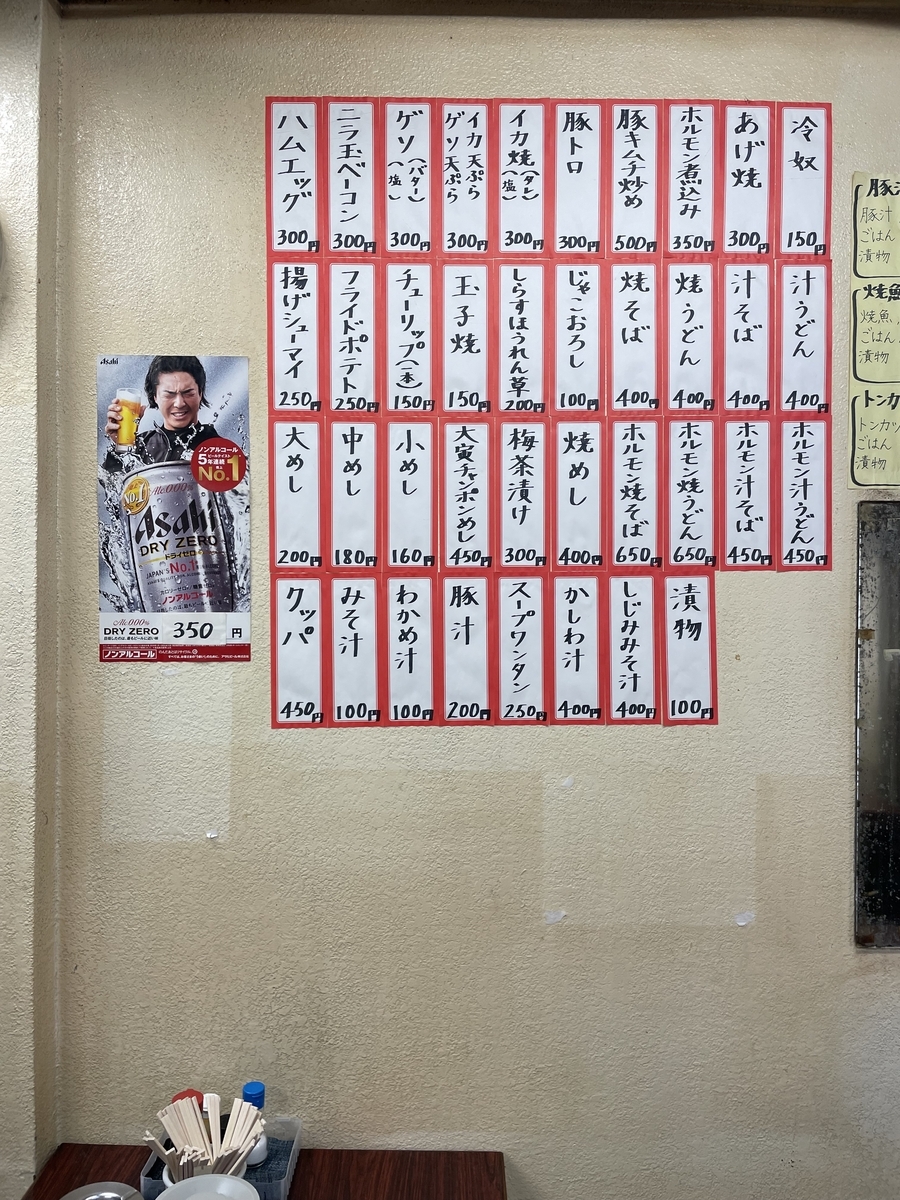 冷奴
150円
あげ焼
300円
ホルモン煮込み
350円
豚キムチ炒め
500円
豚トロ
300円
イカ焼(タレ)(塩)
300円
イカ天ぷら
ゲソ天ぷら
300円
ゲソ(バター)(塩)
300円
ニラ玉ベーコン
300円
ハムエッグ
300円
汁うどん
400円
汁そば
400円
焼うどん
400円
焼そば
400円
じゃこおろし
100円
しらすほうれん草
200円
玉子焼
150円
チューリップ(一本)
150円
フライドポテト
250円
揚げシューマイ
250円
ホルモン汁うどん
450円
ホルモン汁そば
450円
ホルモン焼うどん
650円
ホルモン焼そば
650円
焼めし
400円
梅茶漬け
300円
大寅チャンポンめし
450円
小めし
160円
中めし
180円
大めし
200円
漬物
100円
しじみみそ汁
400円
かしわ汁
400円
スープワンタン
250円
豚汁
200円
わかめ汁
100円
みそ汁
100円
クッパ
450円
豚汁
ごはん
漬物
焼魚
焼魚
ごはん
漬物
ごはん
漬物
Asahi
ノンアルコール
ビールテイスト
5年連続
売上
No.1
No.1
Alc.0.00%
Asahi
DRY ZERO
ドライゼロ
JAPAN'S No.1
カロリーゼロ 糖質ゼロ
ノンアルコール
Alc.0.00%
DRY ZERO
350円
ノンアルコール